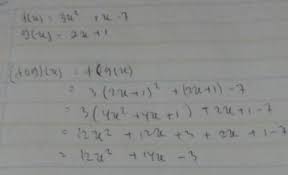 f(x) = 3x² + x - 7
g(x) = 2x + 1
(fog)(x) = f(g(x)
= 3(2x+1)² + (2x+1) - 7
= 3(4x² + 4x + 1) + 2x + 1 - 7
= 12x² + 12x + 3 + 2x + 1 - 7
= 12x² + 14x - 3